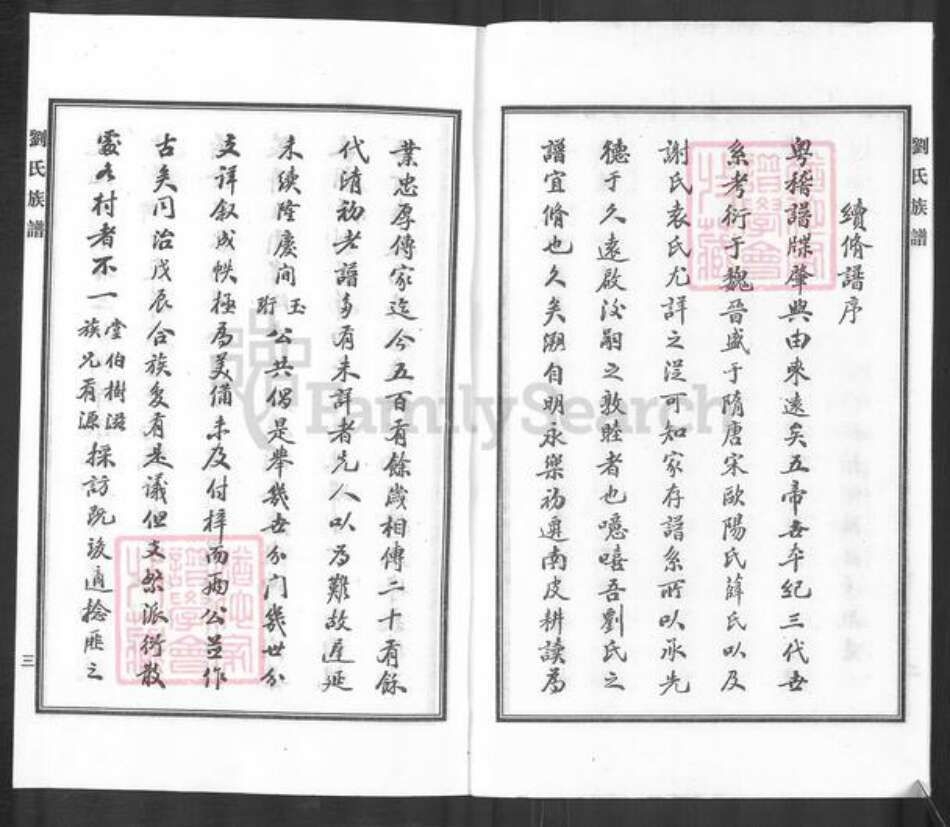 劉氏族譜
續脩譜序
粵稽譜牒肇興由來遠矣五帝吉年紀三代世
系考衍于魏晉盛于隋唐宋歐陽氏薛氏以及
謝氏袁氏尤詳之從可知家存譜系所以承先
德于久遠啟後嗣之敦睦者也噫嘻吾劉氏之
譜宜脩也久矣溯自明永樂初遷南皮耕讀為
業忠厚傳家迄今五百有餘歲相傳二十有餘
代清初老譜多有未詳者先人以為難故遲延
未續隆慶間玉珩公共倡是舉幾世分門幾世分
支詳叙成帙極為美備未及付梓而兩公並作
古矣同治戊辰合族复有是議但支繁派衍散
處各村者不一堂伯樹滋族兄有源採訪既竣適捻匪之
劉氏族譜
三
FamilySearch